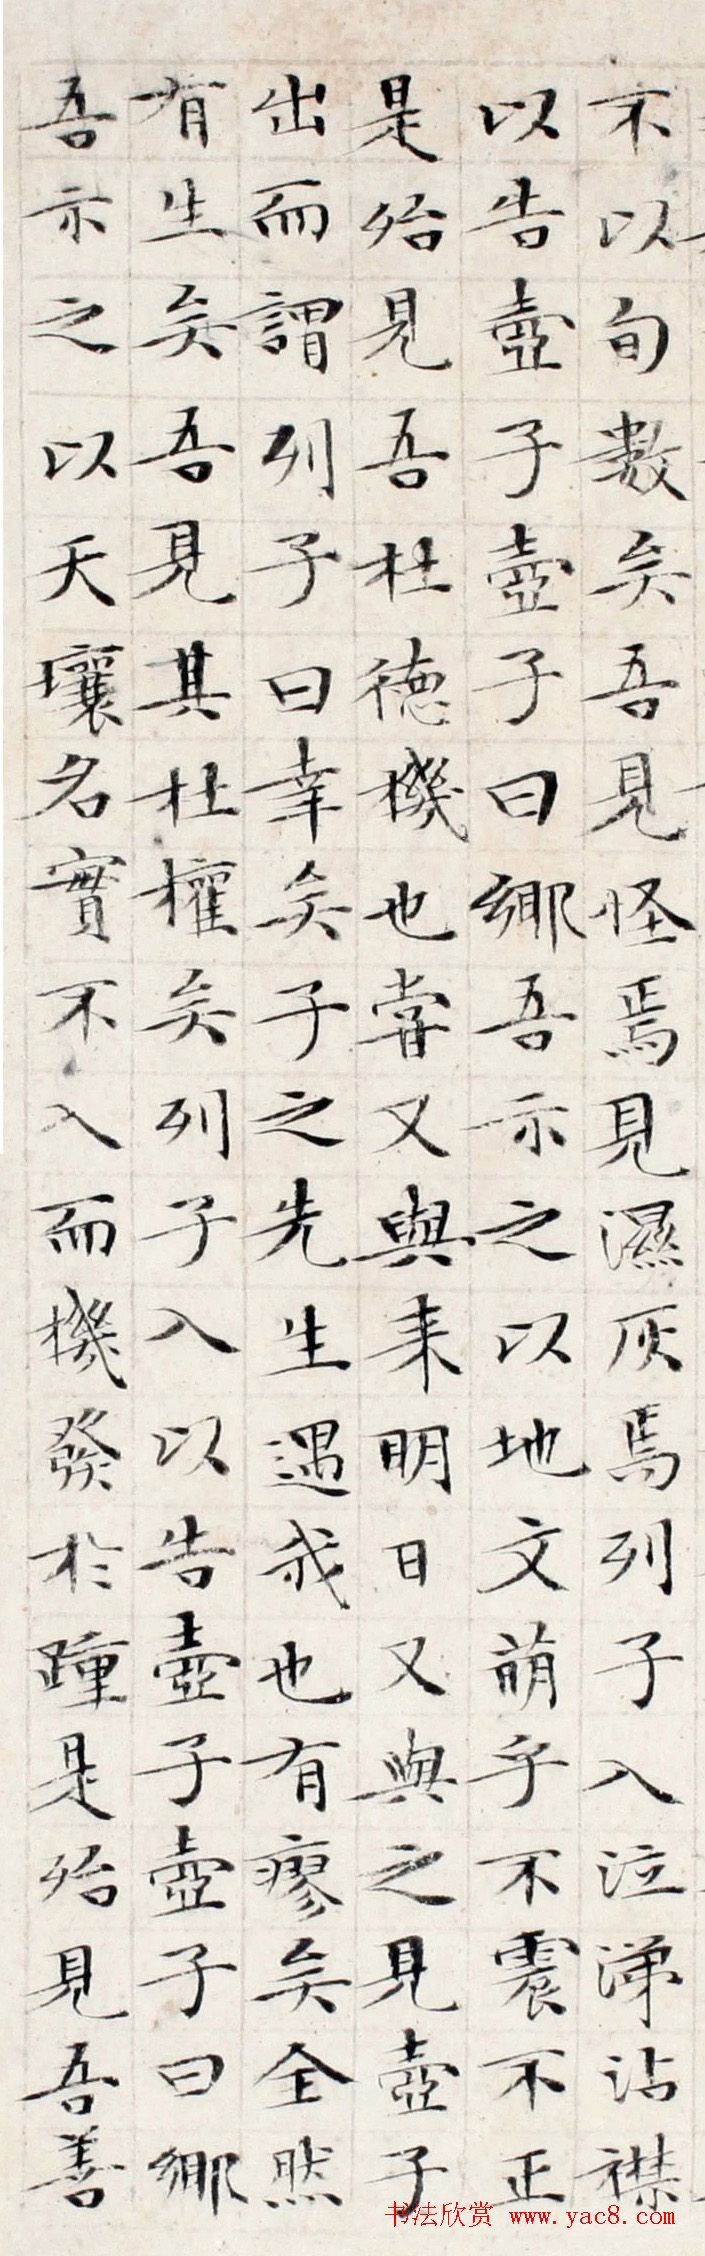 不以旬數矣吾見怪焉見濕灰焉列子入泣涕沾襟
以告壺子壺子曰鄉吾示之以地文萌乎不震不正
是殆見吾杜德機也嘗又與來明日又與之見壺子
出而謂列子曰幸矣子之先生遇我也有瘳矣全然
有生矣吾見其杜權矣列子入以告壺子壺子曰鄉
吾示之以天壤名實不入而機發於踵是殆見吾善
书法欣赏 www.yac8.com